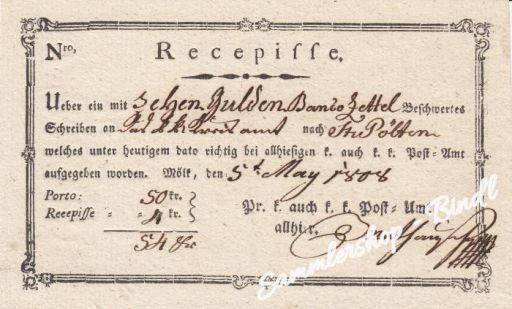 Nro,
Recepisse.
Ueber ein mit Zehen Gulden Banco Zettel Beschwertes
Schreiben an k. k. Kreisamt nach St. Pölten
welches unter heutigem dato richtig bei allhiesigen k. auch k. k. Post-Amt
aufgegeben worden. Mölk, den 5t May 1808
Porto: 50 kr.
Recepisse - - 4 kr.
54 kr
Pr. k. auch k. k. Post-Amt
allhier.
Sammlershop Bindl